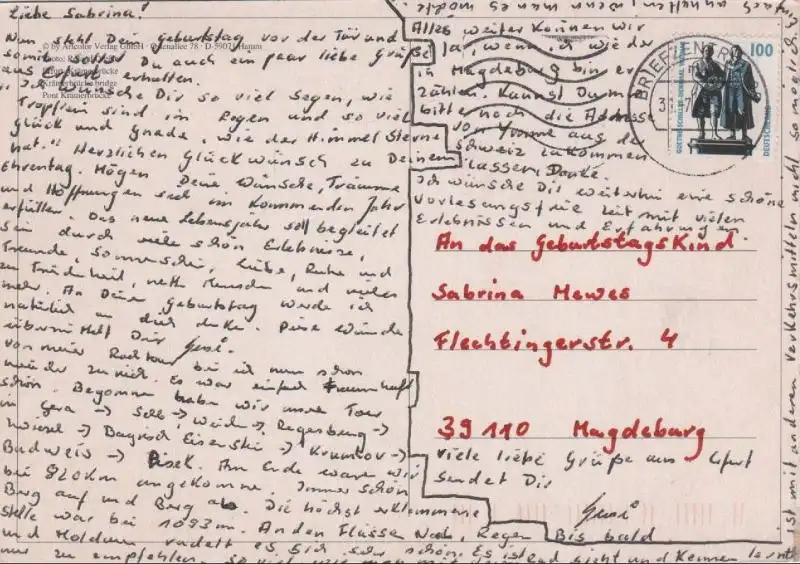 Liebe Sabrina!
Nun steht Dein Geburtstag vor der Tür und
somit sollst Du auch ein paar liebe Grüße
aus Erfurt erhalten.
"Ich wünsche Dir so viel Segen, wie
Tropfen sind im Regen und so viel
Glück und Gnade, wie der Himmel Sterne
hat." Herzlichen Glückwunsch zu Deinem
Ehrentag. Mögen Deine Wünsche, Träume
und Hoffnungen sich im Kommenden Jahr
erfüllen. Das neue Lebensjahr soll begleitet
sein durch viele schöne Erlebnisse,
Freunde, Sonnenschein, Liebe, Ruhe und
nette Menschen und vieles
mehr. An Deinem Geburtstag werde ich
natürlich an dich denken. Diese Wünsche
übermittelt Dir
Von meiner Radtour bin ich nun schon
wieder zurück. Es war einfach traumhaft
schön. Begonnen haben wir unsere Tour
in Gera -> -> -> Regensburg ->
-> Bayrisch Eisenstein -> Krumlov ->
Budweis -> Am Ende waren wir
bei 820km angekommen. Immer schön
Berg auf und Berg ab. Die höchst erklommene
Stelle war bei 1093m. An den Flüssen Regen
und Moldau radelt es sich sehr schön. Es ist
nur zu empfehlen. so viel wie man mit dem Rad sieht und Kennen lernt
ist mit anderen Verkehrsmitteln nicht so möglich.
anhalten wenn man es möchte.
© by Articolor Verlag GmbH · 78 · D-59071 Hamm
Krämerbrücke
Krämerbrücke bridge
Pont Krämerbrücke
Alles weitere Können wir
ja, wenn ich wieder
in Magdeburg bin er-
zählen. Kannst Du mir
bitte noch die Adresse
von Yvonne aus der
Schweiz zukommen
lassen, Danke.
Ich wünsche Dir weiterhin eine schöne
vorlesungsfreie Zeit mit vielen
Erlebnissen und Erfahrungen
BRIEFZENTRUM
100
GOETHE-SCHILLER-DENKMAL WEIMAR
DEUTSCHLAND
An das Geburtstagskind
Sabrina Mewes
Flechtingerstr. 4
39110 Magdeburg
Viele liebe Grüße aus Erfurt
sendet Dir
Bis bald.